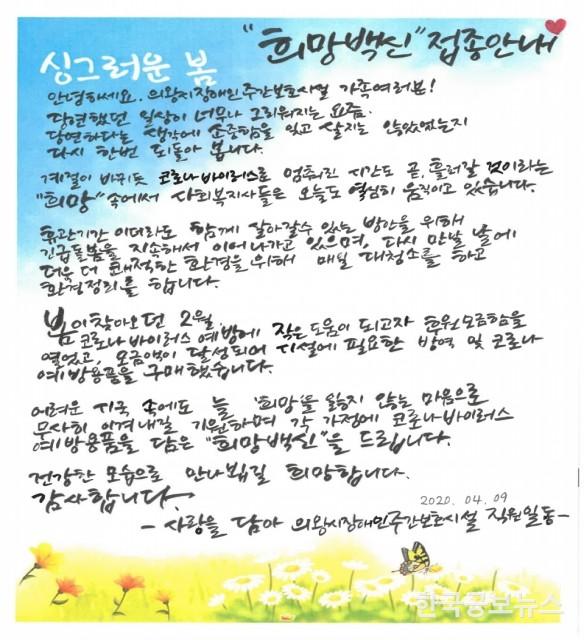 "희망백신" 접종안내
싱그러운 봄
안녕하세요. 의왕시장애인주간보호시설 가족여러분!
당연했던 일상이 너무나 그리워지는 요즘.
당연하다는 생각에 소중함을 잊고 살지는 않았었는지
다시 한번 되돌아 봅니다.
계절이 바뀌듯 코로나 바이러스로 멈춰진 시간도 곧, 흘러갈 것이라는
"희망" 속에서 사회복지사들은 오늘도 열심히 움직이고 있습니다.
휴관기간 이더라도 함께 살아갈수 있는 방안을 위해
긴급돌봄을 지속해서 이어나가고 있으며, 다시 만날 날에
더욱 더 쾌적한 환경을 위해 매일 대청소를 하고
환경정리를 합니다.
봄이 찾아오던 2월.
코로나 바이러스 예방에 작은 도움이 되고자 후원모금함을
열었고, 모금액이 달성되어 시설에 필요한 방역 및 코로나
예방용품을 구매했습니다.
어려운 시국 속에도 늘 '희망'을 잃지 않는 마음으로
무사히 이겨내길 기원하며 각 가정에 코로나바이러스
예방용품을 담은 "희망백신"을 드립니다.
건강한 모습으로 만나뵙길 희망합니다.
감사합니다.
2020. 04. 09
- 사랑을 담아 의왕시장애인주간보호시설 직원일동 -
한국공보뉴스